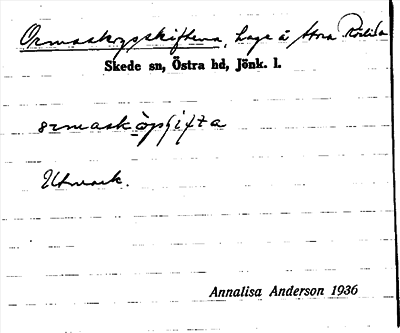 Ormaskögskiftena, hage å Stora Rödja
Skede sn, Östra hd, Jönk. l.
ormaskòpʃifta
Utmark.
Annalisa Anderson 1936